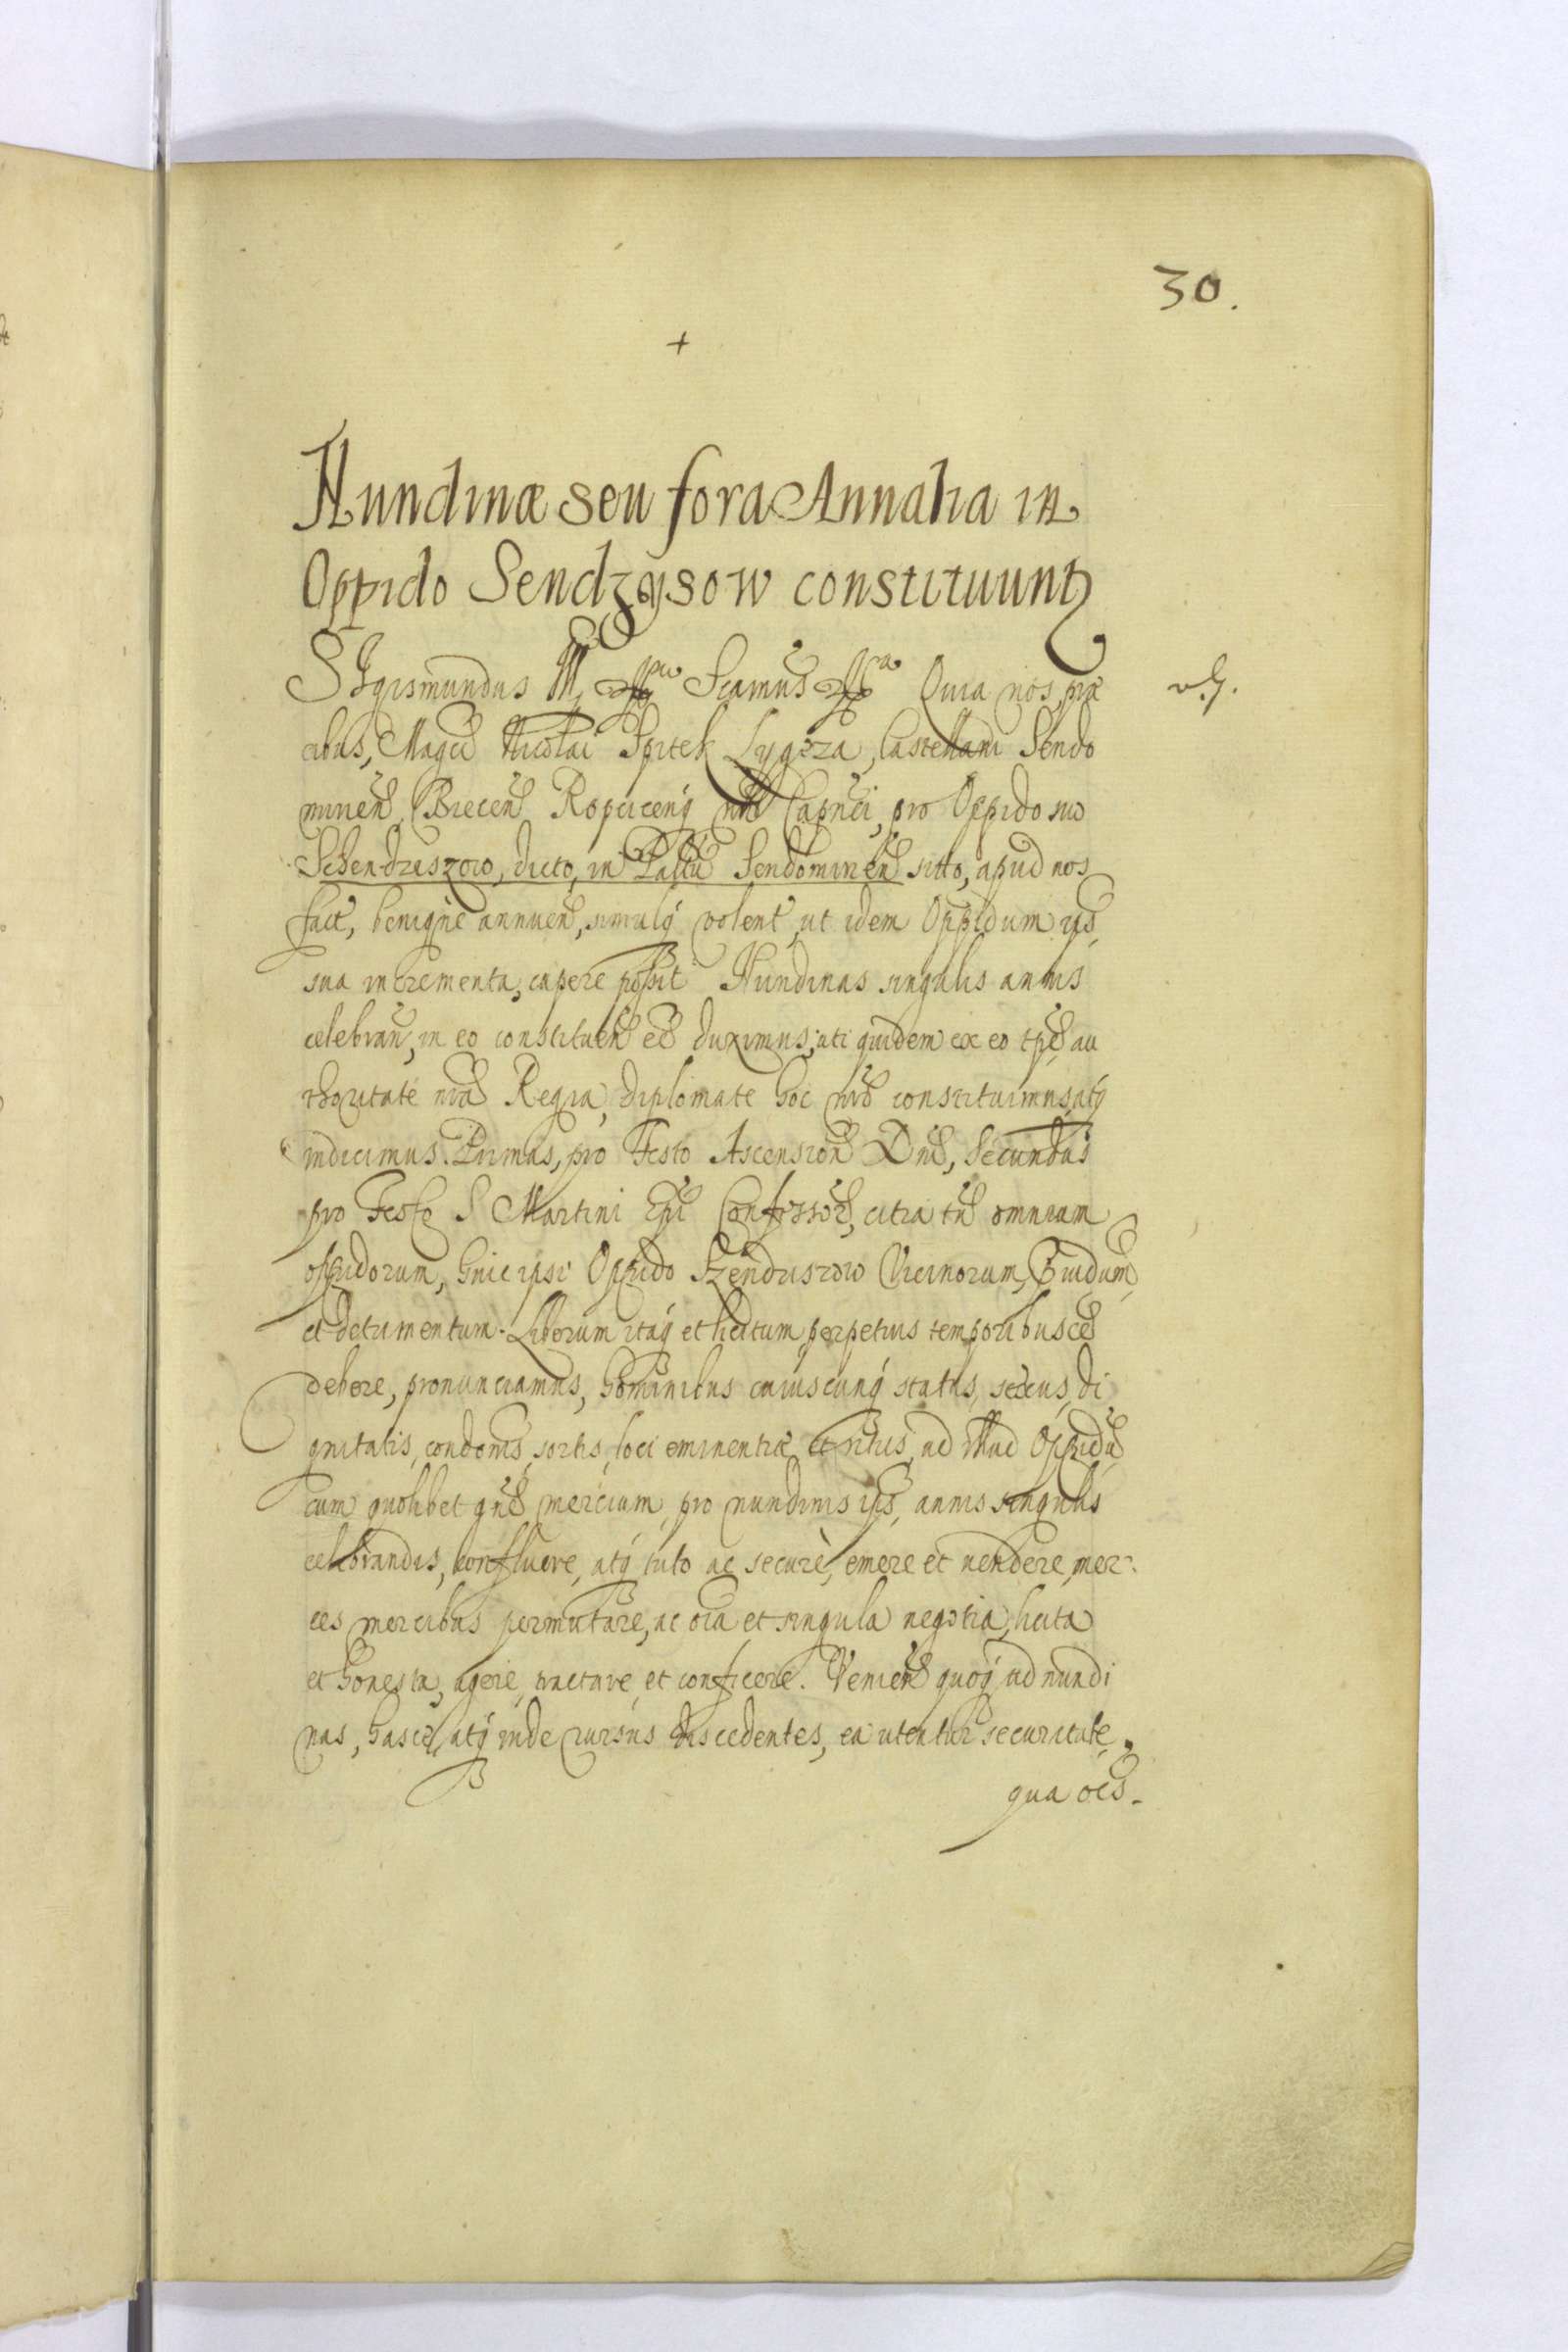 30.
+
Nundinæ seu fora Annalia in
Oppido Sendzysow constituunt
Sigismundus III, Scimus Quia nos, præ
cibus, Magci Nicolai Spitek Lygeza, Castellani Sendo
mirien, Biecen Ropcicenq nri Capnei, pro Oppido suo
Schendziszow, dicto, in Pallu Sendomirien sitto, apud nos
fact, benigne annuen, simulq volent, ut idem Oppidum ijs,
sua incrementa, capere possit Nundinas singulis annis
celebran, in eo constituen ee duximus, uti quidem ex eo tpe, au
thoritate nra Regia, diplomate hoc nro constituimus, atq
indicimus. Primas, pro Festo Ascension Dni, Secundas
pro Festo S Martini Epi Confessor, citra tn omnium
oppidorum, huic ipsi Oppido Szendziszow Vicinorum,
et detrimentum. Liberum itaq et licitum perpetuis temporibus ee
debere, pronunciamus, hominibus cuiuscunq status, sexus, di
gnitatis, condonis, sortis, loci eminentiæ et ritus, ad illud Oppidu,
cum quolibet gne mercium, pro nundinis ijs, annis singulis
celebrandis, confluere, atq tuto ac securè, emere et vendere, mer
ces mercibus permutare, ac oia et singula negotia, licita
et honesta, agere, tractare, et conficere. Venien quoq ad nundi
nas, hasce, atq inde rursus discedentes, ea utentur securitate,
qua oes